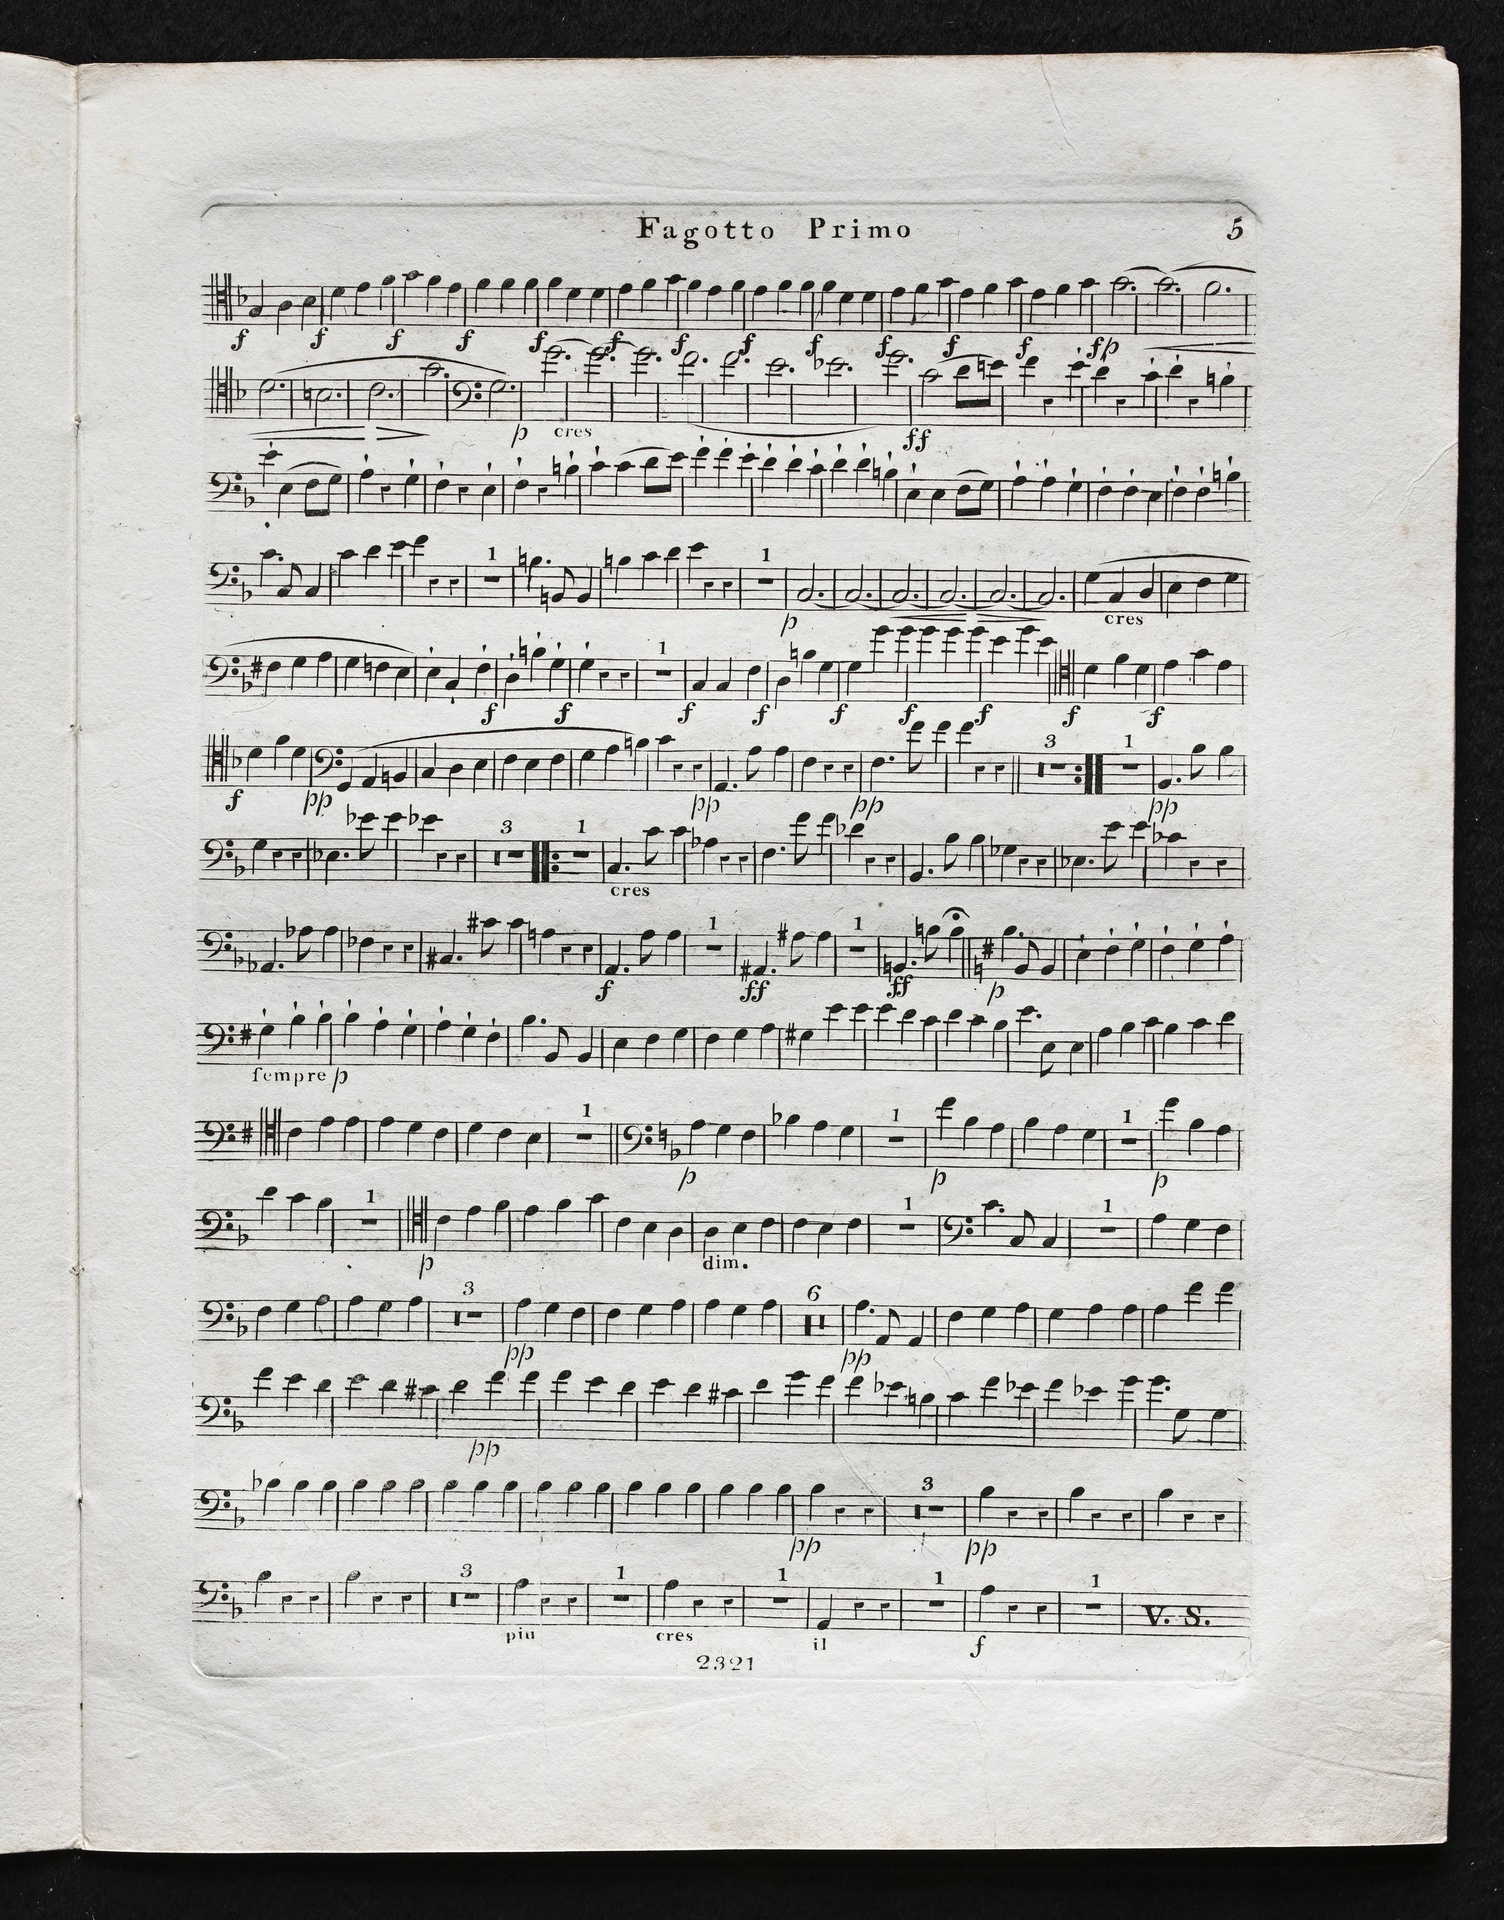 Fagotto Primo 5
f f f f f f f f f f f f fp
p cres ff
1 1 p cres
f f 1 f f f f f f f
f pp pp pp 3 1 pp
3 1 cres
f 1 ff 1 ff p
sempre p
1 p 1 p 1 p
1 p dim. 1 1
3 pp 6 pp
pp
pp 3 pp
3 piu 1 cres 1 il 1 f 1 V. S.
2321